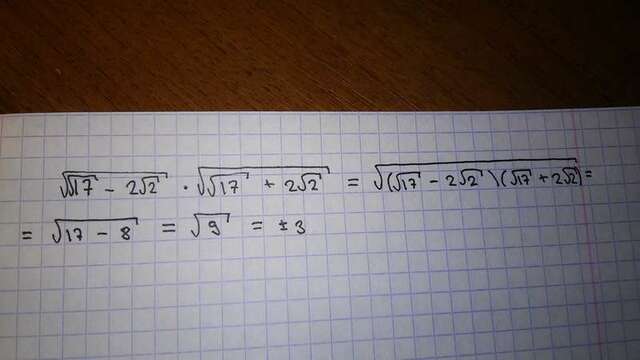 √(√17 - 2√2) · √(√17 + 2√2) = √((√17 - 2√2)(√17 + 2√2)) =
= √(17 - 8) = √9 = ±3